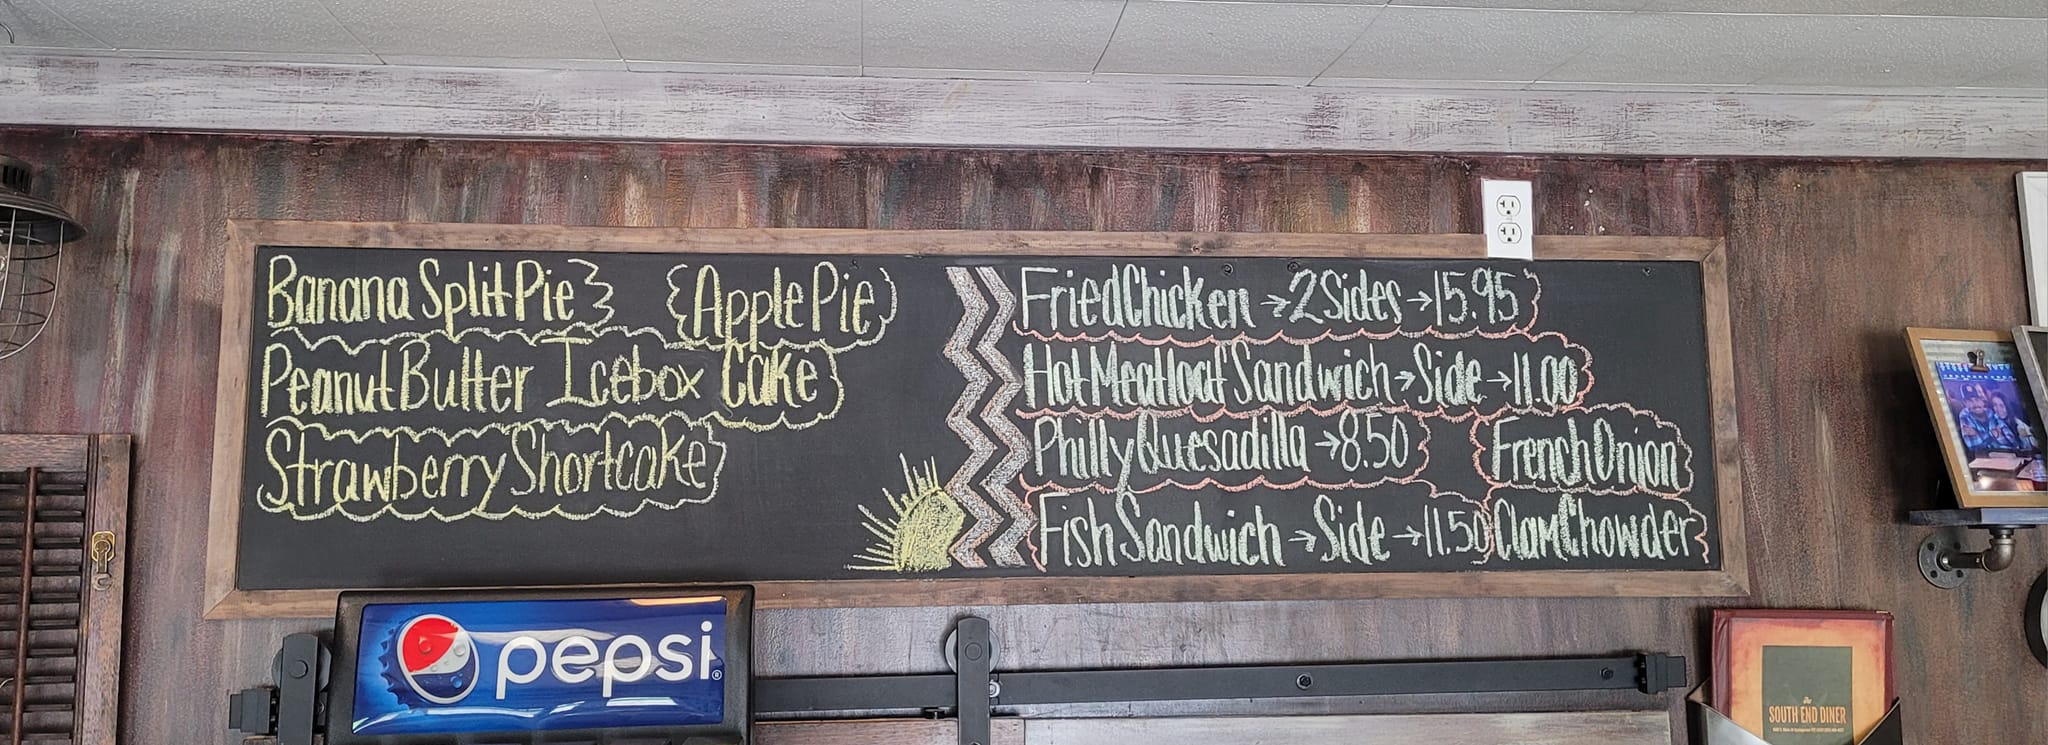 Banana Split Pie
Apple Pie
Peanut Butter Icebox Cake
Strawberry Shortcake
Fried Chicken → 2 Sides → 15.95
Hot Meatloaf Sandwich → Side → 11.00
Philly Quesadilla → 8.50
French Onion
Fish Sandwich → Side → 11.50
Clam Chowder
pepsi
The
SOUTH END DINER